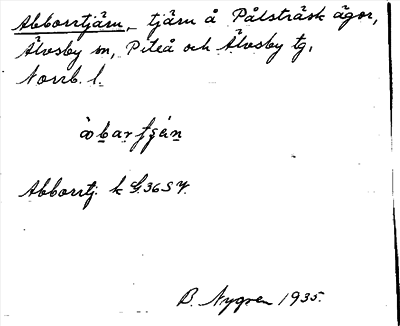 Abborrtjärn, tjärn å Pålsträsk ägor,
Älvsby sn, Piteå och Älvsby tg,
Norrb. l.
Abborrtj. k
B. Nygren 1935.